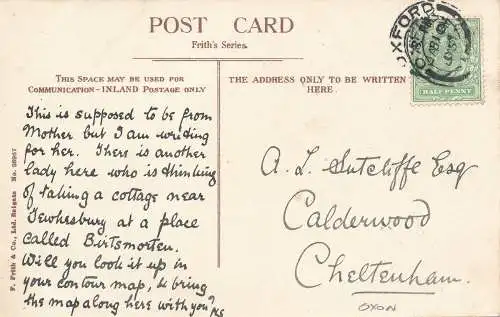 POST CARD
Frith's Series.
THIS SPACE MAY BE USED FOR
COMMUNICATION – INLAND POSTAGE ONLY
THE ADDRESS ONLY TO BE WRITTEN
HERE.
This is supposed to be from
Mother but I am writing
for her. There is another
lady here who is thinking
of taking a cottage near
Tewkesbury at a place
called Birtsmorten.
Will you look it up in
your contour map, & bring
the map along here with you?
A. L. Sutcliffe Esq
Calderwood
Cheltenham.
OXON
OXFORD
HALF PENNY
F. Frith & Co., Ltd. Reigate